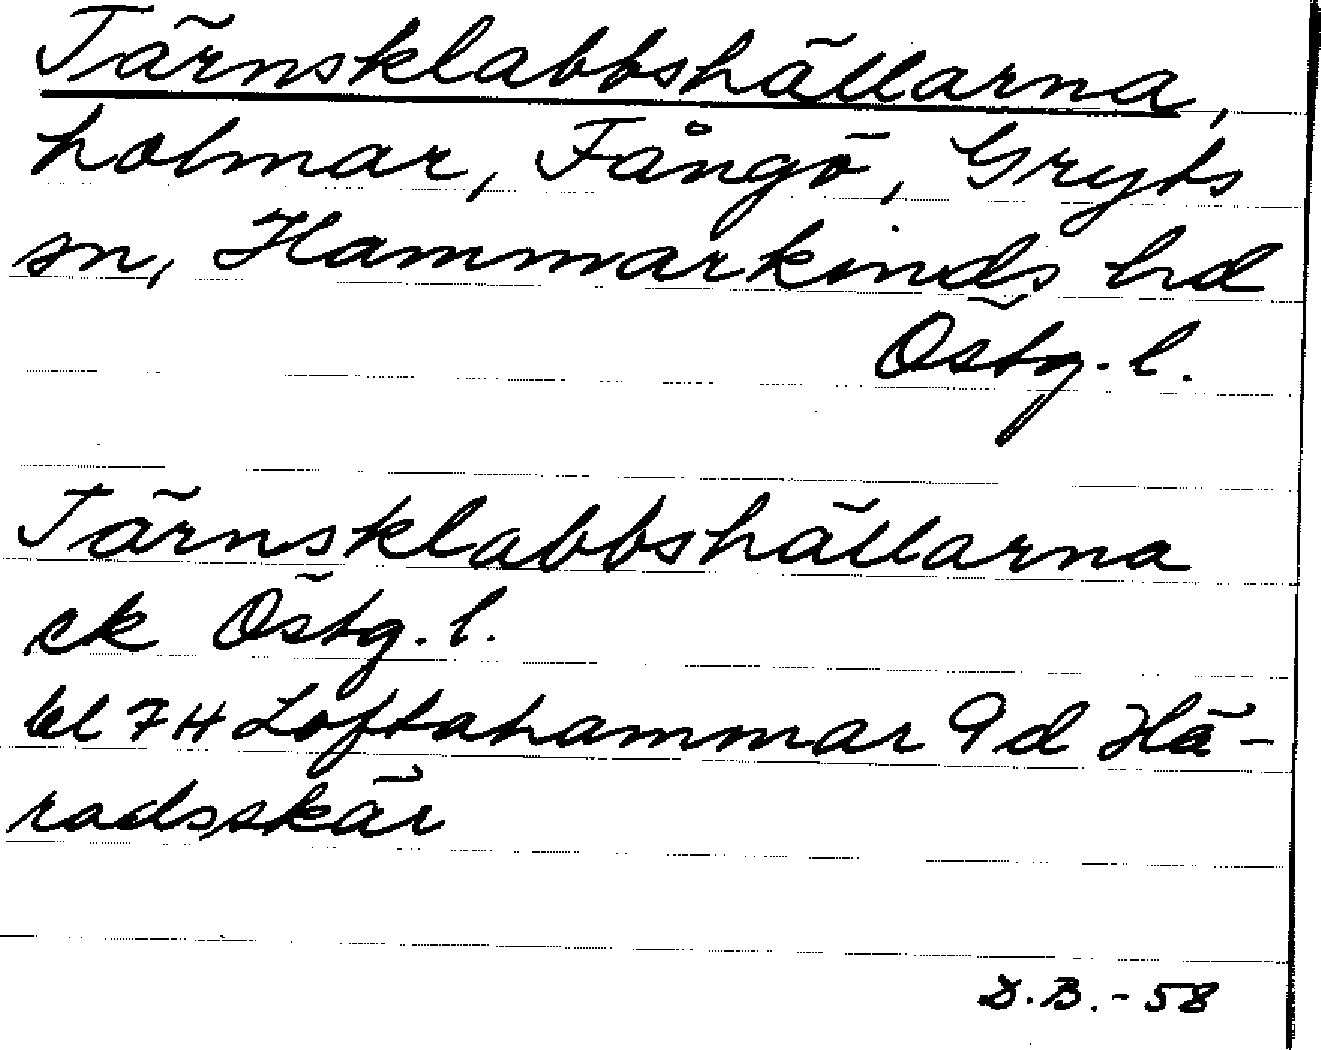 Tärnsklabbshällarna,
holmar, Fångö, Gryts
sn, Hammarkinds hd
Östg. l.
Tärnsklabbshällarna
ek Östg. l.
bl 7H Loftahammar 9d Hä-
radsskär
D.B.-58